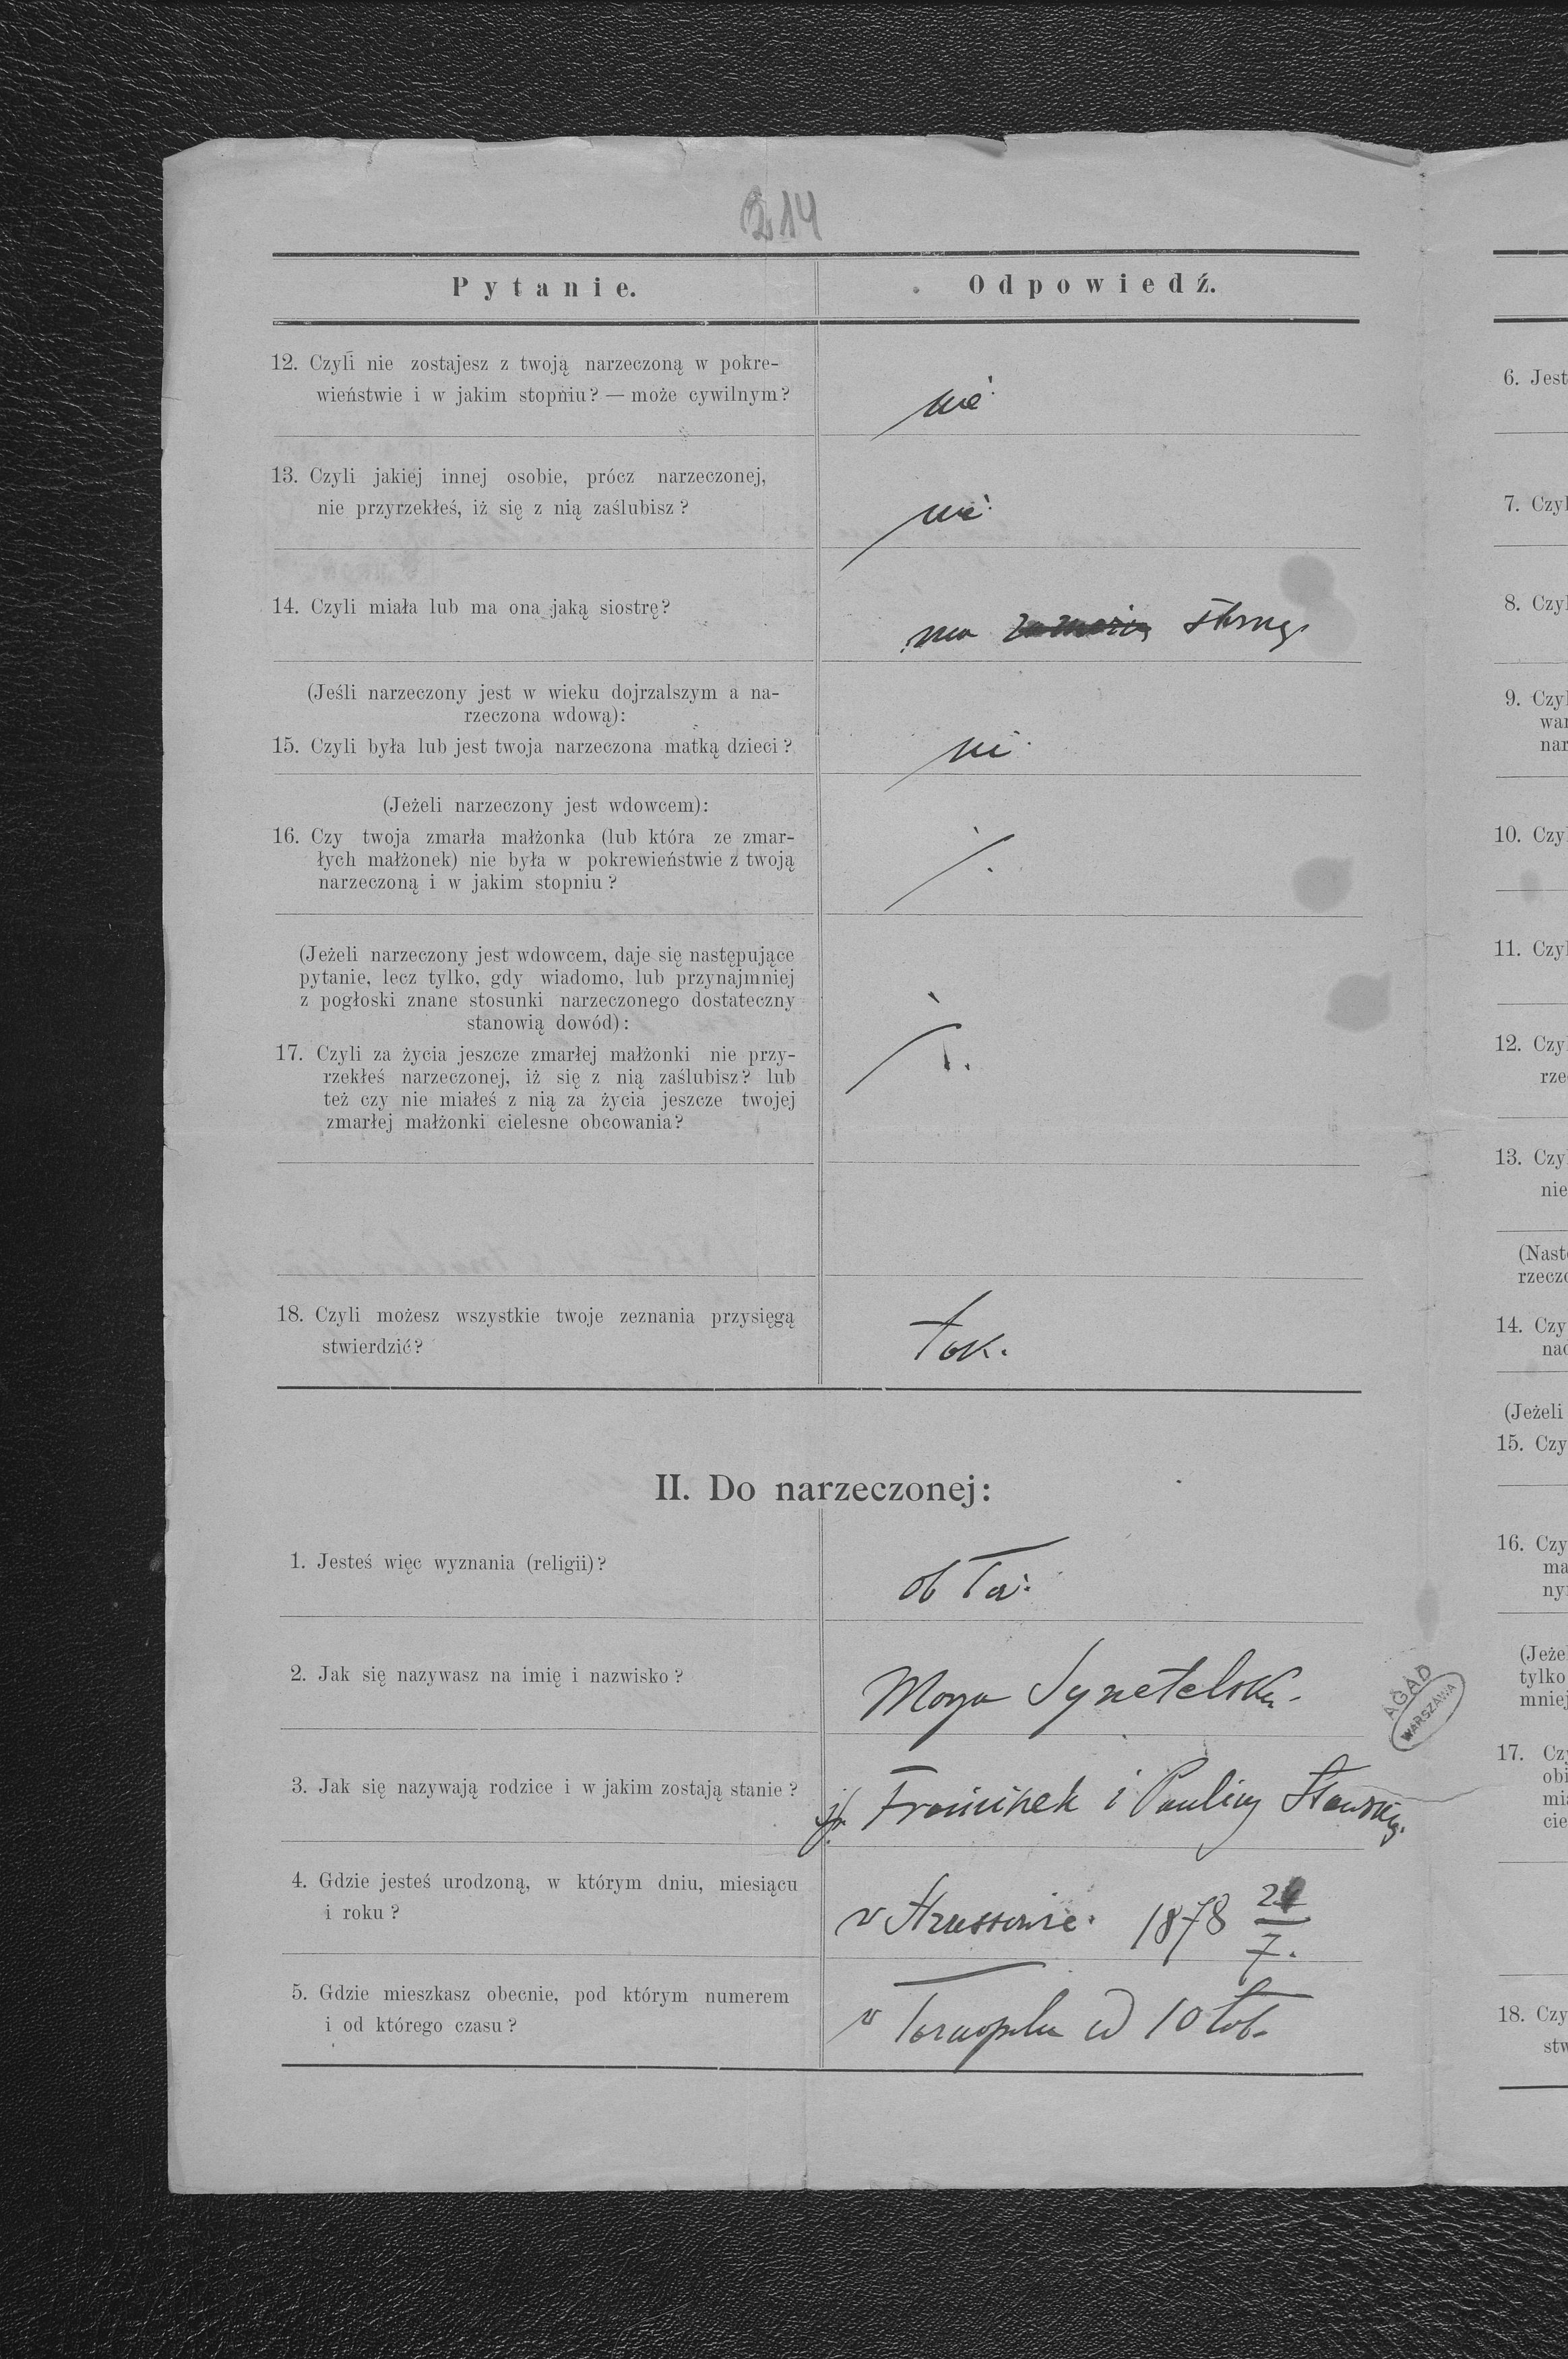 214
Pytanie.
Odpowiedź.
12. Czyli nie zostajesz z twoją narzeczoną w pokre-
wieństwie i w jakim stopniu? — może cywilnym?
nie
13. Czyli jakiej innej osobie, prócz narzeczonej,
nie przyrzekłeś, iż się z nią zaślubisz?
nie
14. Czyli miała lub ma ona jaką siostrę?
ma
(Jeśli narzeczony jest w wieku dojrzalszym a na-
rzeczona wdową):
15. Czyli była lub jest twoja narzeczona matką dzieci?
nie
(Jeżeli narzeczony jest wdowcem):
16. Czy twoja zmarła małżonka (lub która ze zmar-
łych małżonek) nie była w pokrewieństwie z twoją
narzeczoną i w jakim stopniu?
(Jeżeli narzeczony jest wdowcem, daje się następujące
pytanie, lecz tylko, gdy wiadomo, lub przynajmniej
z pogłoski znane stosunki narzeczonego dostateczny
stanowią dowód):
17. Czyli za życia jeszcze zmarłej małżonki nie przy-
rzekłeś narzeczonej, iż się z nią zaślubisz? lub
też czy nie miałeś z nią za życia jeszcze twojej
zmarłej małżonki cielesne obcowania?
18. Czyli możesz wszystkie twoje zeznania przysięgą
stwierdzić?
tak.
II. Do narzeczonej:
1. Jesteś więc wyznania (religii)?
ob łac.
2. Jak się nazywasz na imię i nazwisko?
3. Jak się nazywają rodzice i w jakim zostają stanie?
Franciszek i Pauliny
4. Gdzie jesteś urodzoną, w którym dniu, miesiącu
i roku?
w Strussowie 1878
7.
5. Gdzie mieszkasz obecnie, pod którym numerem
i od którego czasu?
w Tarnopolu od 10 lat.
AGAD
WARSZAWA
6. Jest
7. Czyl
8. Czyl
9. Czyl
war
nar
10. Czy
11. Czyl
12. Czy
rze
13. Czy
nie
(Nast
rzecz
14. Czy
nad
(Jeżeli
15. Czy
16. Czy
ma
ny
(Jeże
tylko
mniej
17. Cz
obi
mi
cie
18. Czy
stw